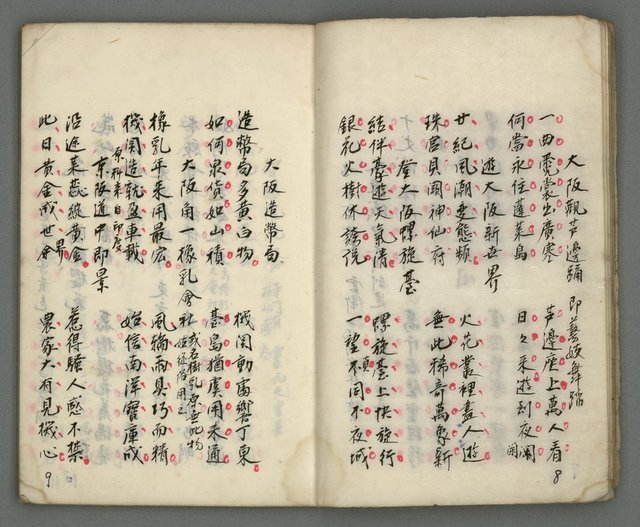 大阪觀芦邊踊 即藝妓舞踏
一曲霓裳出廣寒 芦邊座上萬人看
何當永住蓬萊島 日々來遊到夜闌
遊大阪新世界
廿紀風潮變態頻 火花叢裡喜人遊
珠宮貝闕神仙府 無此稀奇萬象新
登大阪螺旋臺
結伴臺遊天氣清 螺旋臺上快旋行
銀花火樹休誇說 一望真同不夜城
8
大阪造幣局
造幣局多黃白物 機関動處響丁東
如何泉貨如山積 臺島猶虞用未通
大阪角一橡乳會社
橡乳年來用最宏 風輪雨具巧而精
機関造就盈車載 始信南洋寶庫成
原料來自印度
京阪道中即景
沿途菜蕊綠黃金 惹得騷人感不禁
此日黃金成世界 農家大有見機心
9